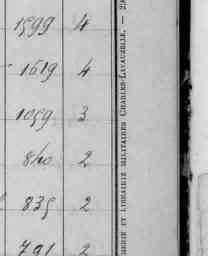 1599 4
1619 4
1059 3
840 2
835 2
791 2
MERIE ET LIBRAIRIE MILITAIRES CHARLES-LAVAUZELLE. —